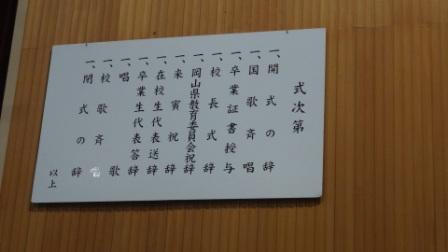 式次第
一、開式の辞
一、国歌斉唱
一、卒業証書授与
一、校長式辞
一、岡山県教育委員会祝辞
一、来賓祝辞
一、在校生代表送辞
一、卒業生代表答辞
一、唱歌
一、校歌斉唱
一、閉式の辞
以上